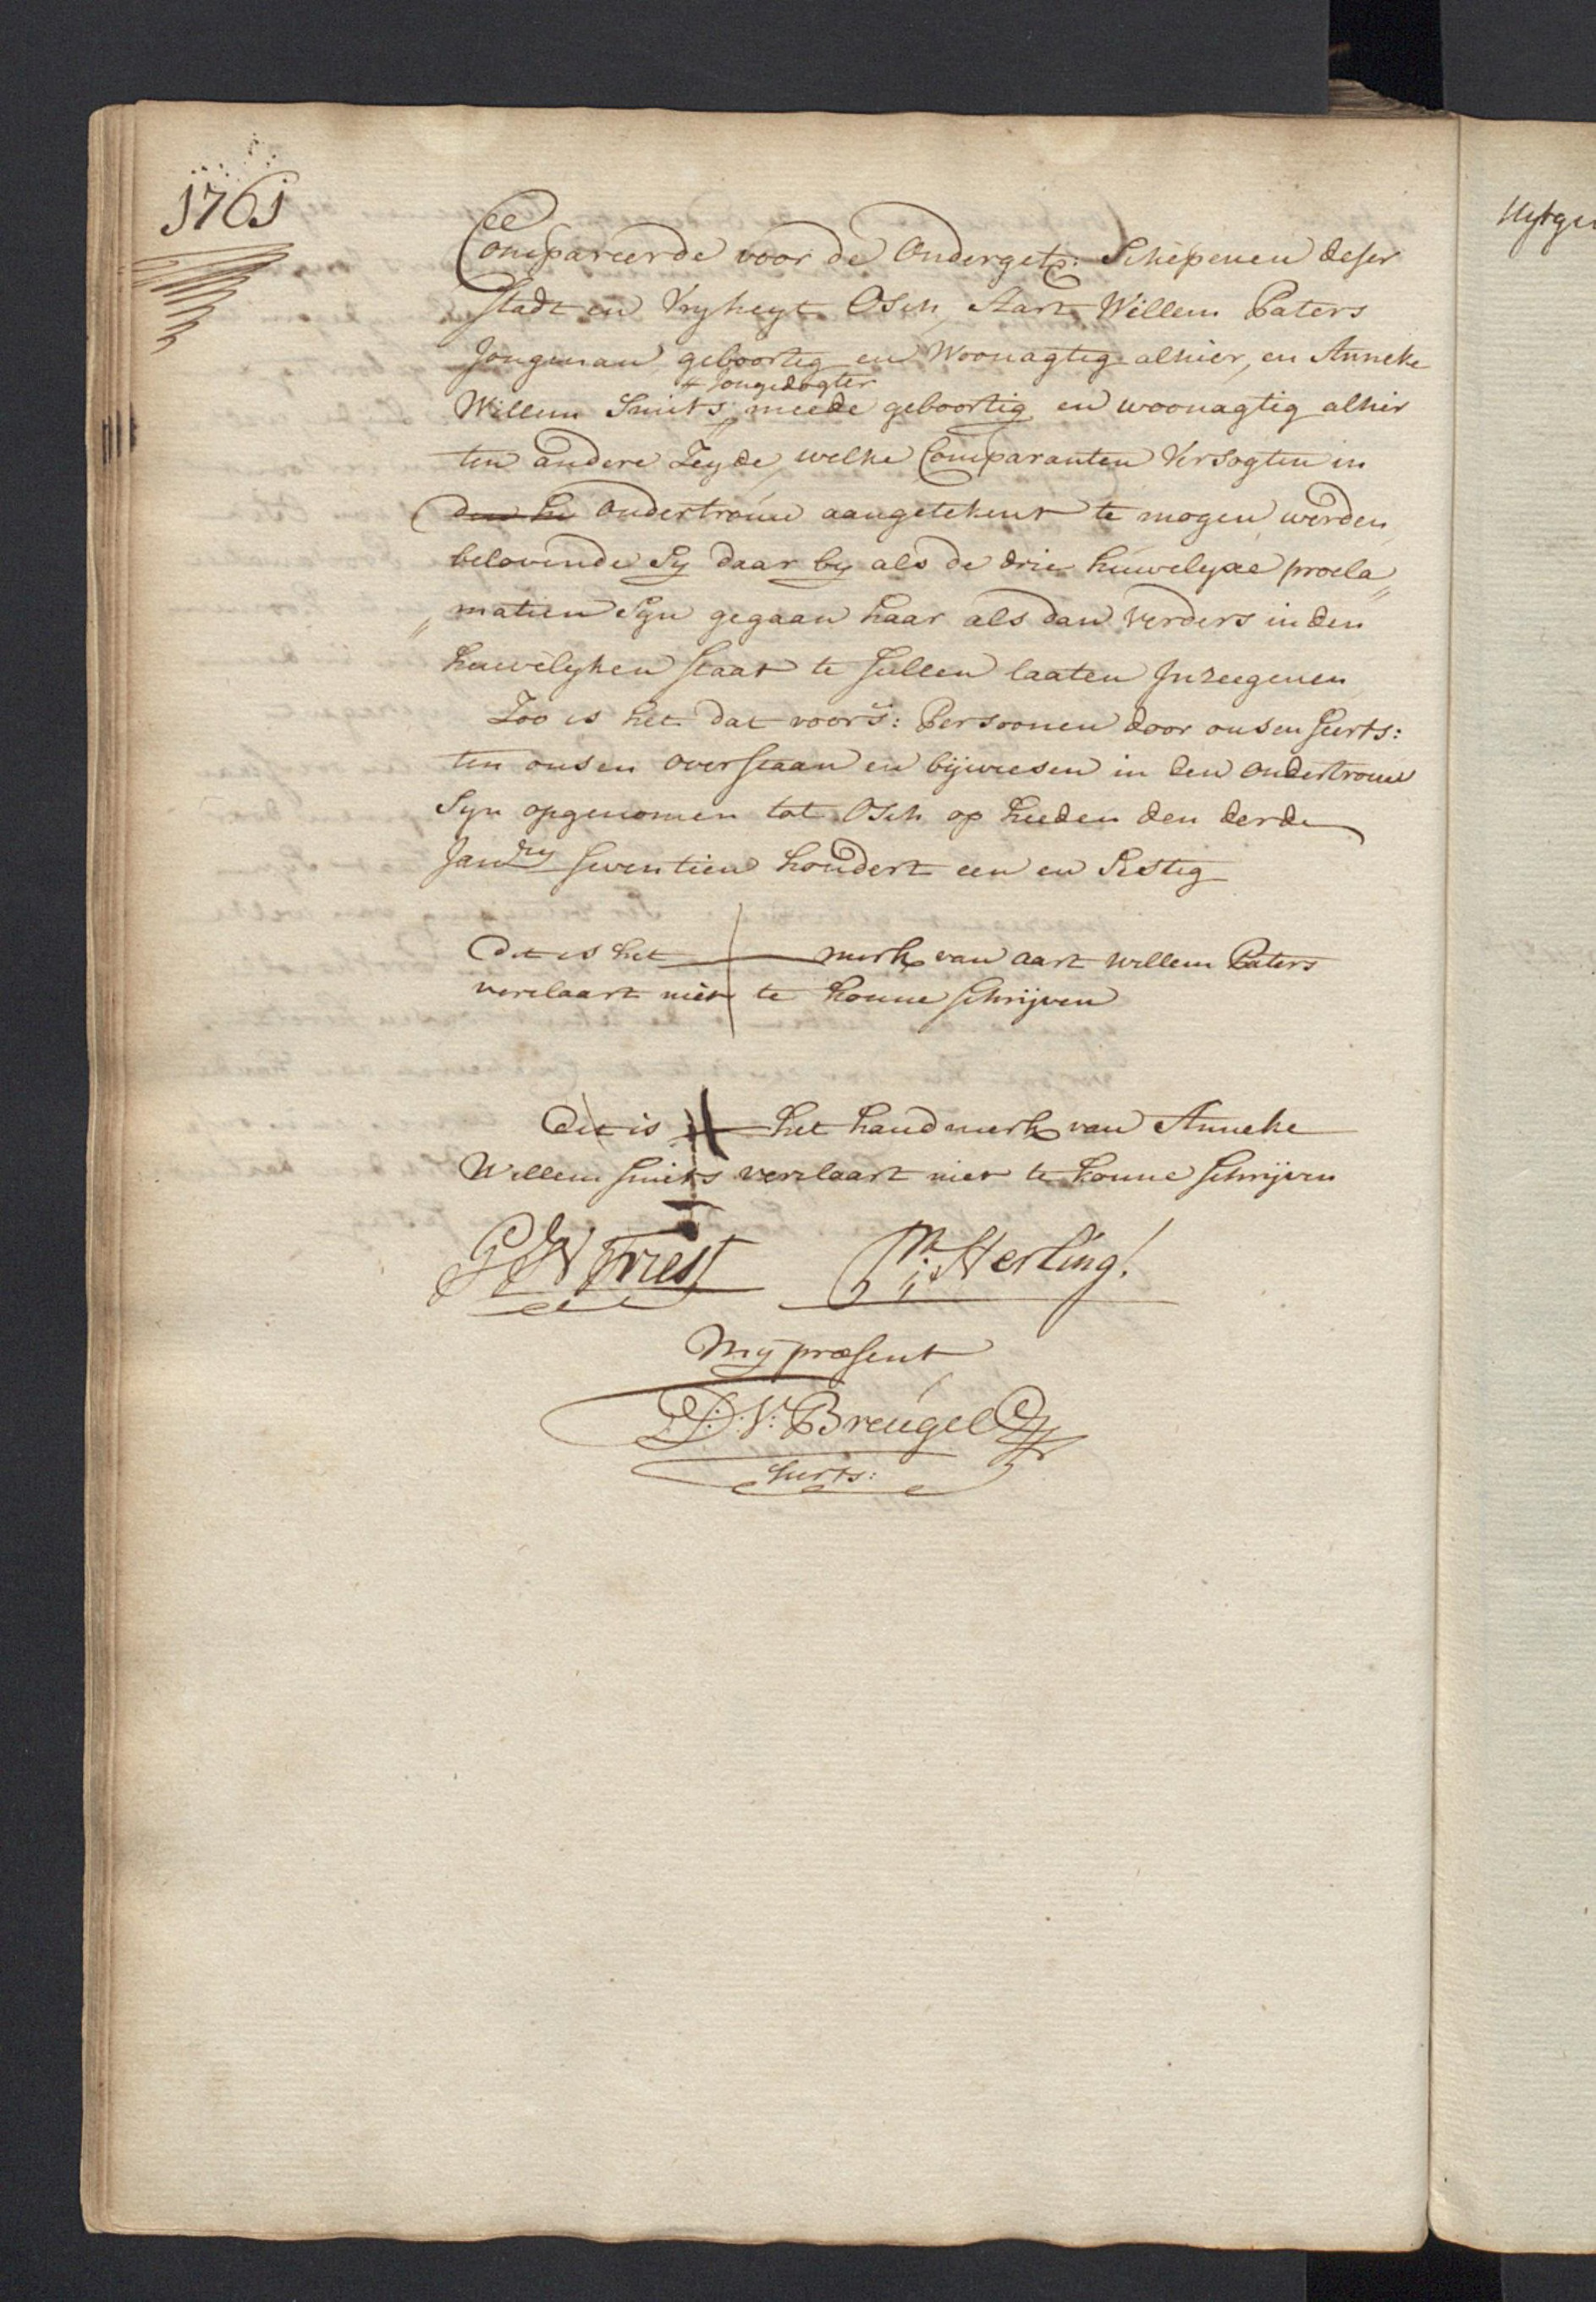 1761
Compareerde voor de Onderget: Schepenen deser
Stadt en Vryheyt Osch, Aart Willem Paters
Jongman geboortig en Woonagtig alhier, en Anneke
# Jongedogter
Willem Smits # meede geboortig en woonagtig alhier
ten andere Zeyde, welke Comparanten Versogten in
den ondertrouw aangetekent te mogen werden,
belovende Sy daar by als de drie huwelyxe procla"
"matien Syn gegaan haar als dan verders in den
huwelyken staat te sullen laaten Inzeegenen
Zoo is het dat voors: Persoonen door onsen Secrts:
ten onsen overstaan en bijweesen in den ondertrouw
Syn opgenomen tot Osch op heeden den derde
Janry seventien hondert een en Sestig
Dit is het merk van Aart Willem Paters
verclaart niet te konne schrijven
Dit is het handmerk van Anneke
Willem Smits verclaart niet te konne schrijven
Driest Sterling
My præsent
D: V: Breugel
Secrts: